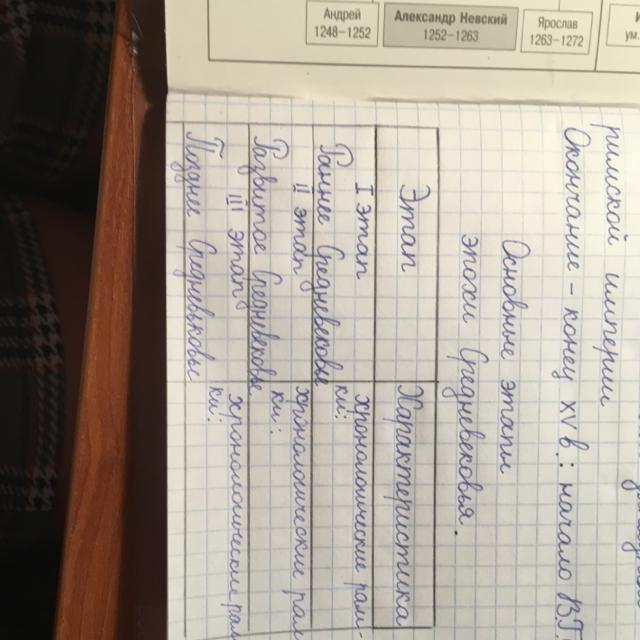 Андрей
1248–1252
Александр Невский
1252–1263
Ярослав
1263–1272
ум.
римской империи
Окончание - конец XV в.: начало ВГ
Основные этапы
эпохи Средневековья.
Этап
Характеристика
I этап
Раннее Средневековье
хронологические рам-
ки:
II этап
Развитое Средневековье
хронологически рам
ки:
III этап
Поздне Средневековье
хронологические рам
ки: